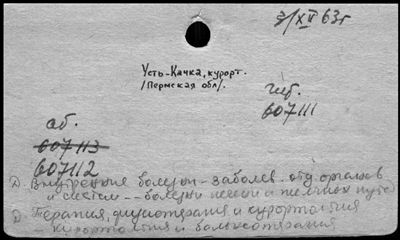 3/XII 63г
Усть-Качка, курорт.
/Пермская обл/.
607111
аб.
607113
607112
Д. Внутренние болезни - заболев. отд. органов
и систем -- болезни печени и желчных путей
Д. Терапия, физиотерапия и курортология
- курортология и бальнеотерапия